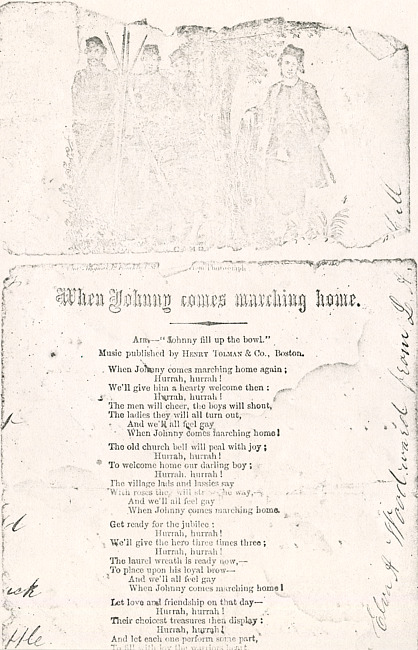 When Johnny comes marching home.
AIR—"Johnny fill up the bowl."
Music published by HENRY TOLMAN & Co., Boston.
When Johnny comes marching home again;
Hurrah, hurrah!
We'll give him a hearty welcome then:
Hurrah, hurrah!
The men will cheer, the boys will shout,
The ladies they will all turn out,
And we'll all feel gay
When Johnny comes marching home!
The old church bell will peal with joy;
Hurrah, hurrah!
To welcome home our darling boy;
Hurrah, hurrah!
The village lads and lassies say
With roses they will the way,—
And we'll all feel gay
When Johnny comes marching home.
Get ready for the jubilee:
Hurrah, hurrah!
We'll give the hero three times three;
Hurrah, hurrah!
The laurel wreath is ready now,—
To place upon his loyal brow—
And we'll all feel gay
When Johnny comes marching home!
Let love and friendship on that day—
Hurrah, hurrah!
Their choicest treasures then display:
Hurrah, hurrah!
And let each one perform some part,
To fill with joy the warriors heart
Woodward from